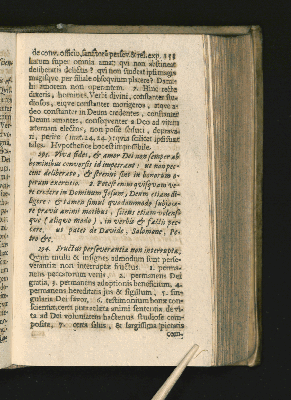 de conv. officio, sanctorū persev. & rel. exp. 151
latum super omnia amat; qui non abstineat
deliberatis delictis? qui non studeat ipsi magis
magisque per filiale obsequium placere? Datur
hi amorem non operantem. 7. Hinc recte
cateris, homines Verbi divini, constanter stu-
diosos, eque constanter morigeros, æque a-
deo constanter in Deum credentes, constanter
Deum amantes, consequenter a Deo ad vitam
æternam electos, non posse seduci, depravari
ri, perire (mat. 24, 24.) quia scilicet ipsi sunt
tales. Hypothetice hoc est impossibile.
193. Viva fides, & amor Dei non semper ab
hominibus conversis id impetrant: ut non pec-
cent deliberato, & strenui sint in bonorum o-
perum exercitio. 2. Potest enim quispiam ve-
re credere in Dominum Jesum, Deum etiam di-
ligere: & tamen simul quodammodo subjace-
re pravis animi motibus, sciens etiam volens-
que (aliquo modo) in verbis & factis pec-
care. ut patet de Davide, Salomone, Pe-
tro &c.
194. Fructus perseverantiæ non interruptæ.
Quam multi & insignes admodum sunt perse-
verantiæ non interruptæ fructus. 1. perma-
nens peccatorum venia. 2. permanens Dei
gratia, 3. permanens adoptionis beneficium, 4.
permanens hereditatis jus & sigillum, 5. sin-
gularis Dei favor, 6. testimonium bonæ con-
scientiæ, certi pura relata animi sententia de vi-
ta ad Dei voluntatem hactenus studiose com-
posita, 7. certa salus, & largissima pietatis
com-